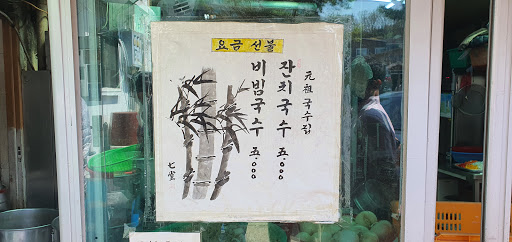 요금 선불
元祖국수집
잔치국수 五.000
비빔국수 五.000